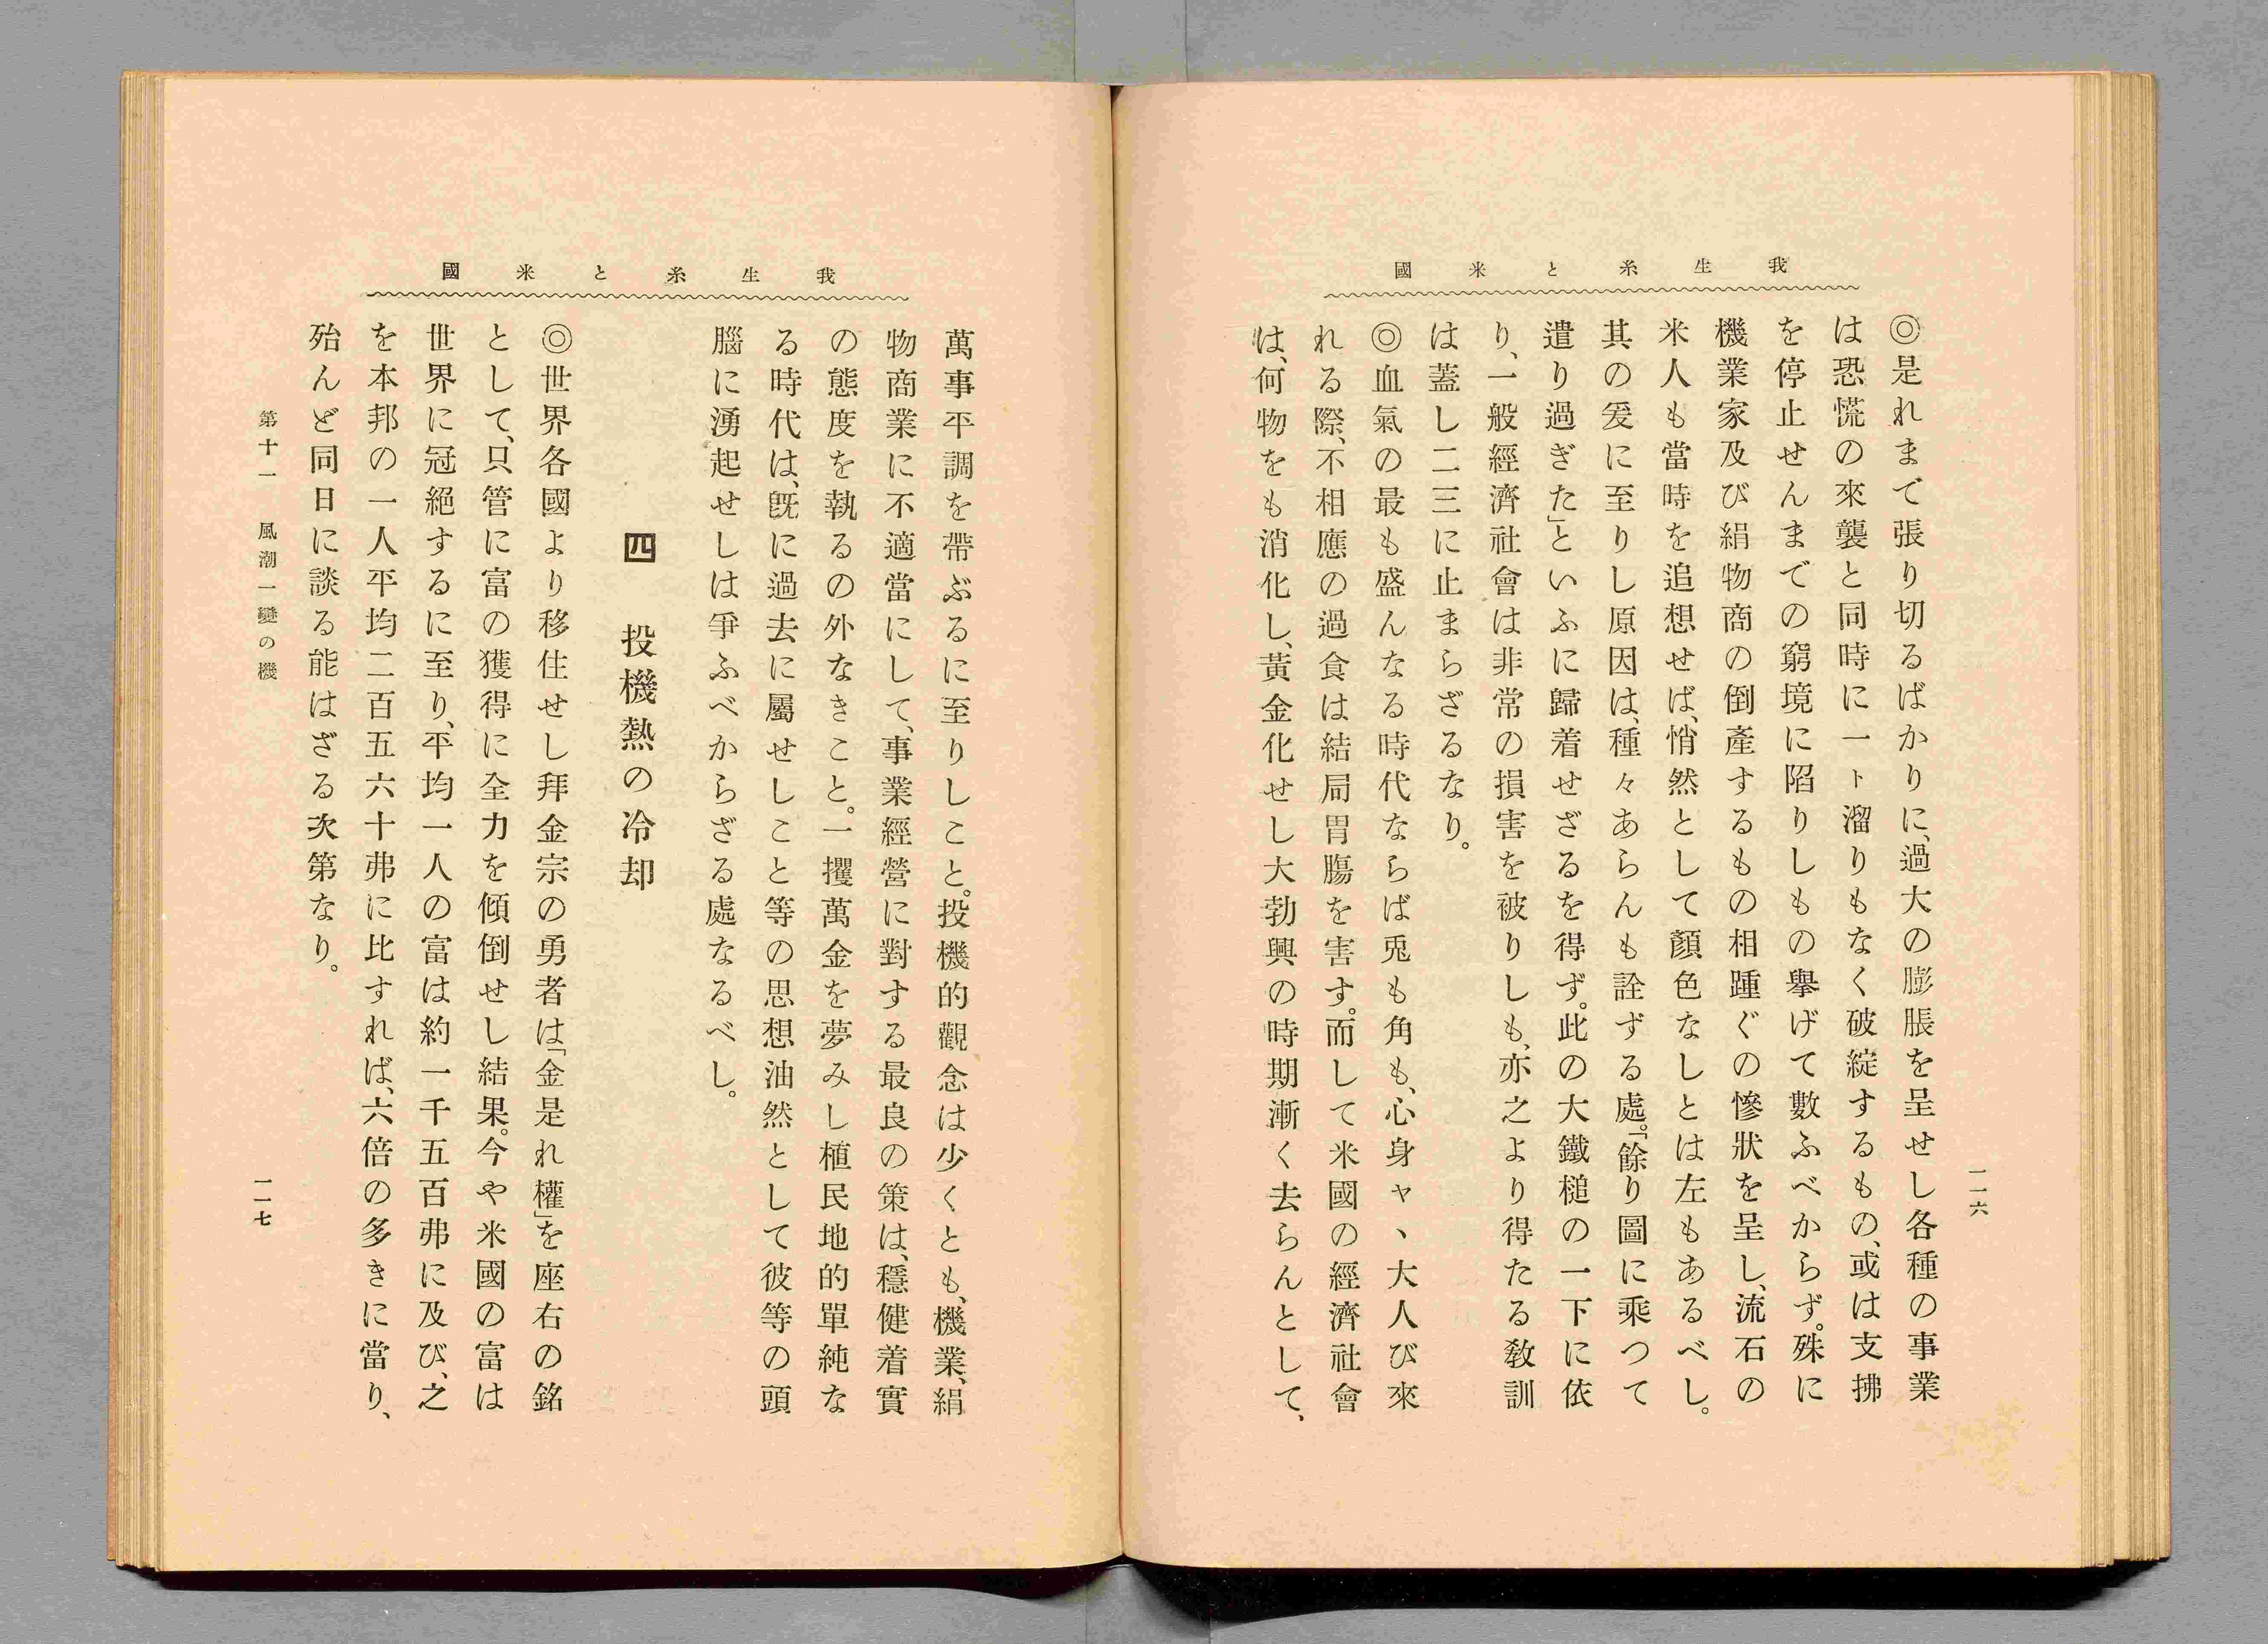 我生糸と米國
◎是れまで張り切るばかりに、過大の膨脹を呈せし各種の事業
は恐慌の來襲と同時に一ト溜りもなく破綻するもの、或は支拂
を停止せんまでの窮境に陷りしもの擧げて數ふべからず。殊に
機業家及び絹物商の倒產するもの相踵ぐの慘狀を呈し、流石の
米人も當時を追想せば、悄然として顏色なしとは左もあるべし。
其の爰に至りし原因は、種々あらんも詮ずる處。『餘り圖に乘つて
遣り過ぎた」といふに歸着せざるを得ず。此の大鐵槌の一下に依
り、一般經濟社會は非常の損害を被りしも、亦之より得たる敎訓
は蓋し二三に止まらざるなり。
◎血氣の最も盛んなる時代ならば兎も角も、心身ヤヽ大人び來
れる際、不相應の過食は結局胃膓を害す。而して米國の經濟社會
は、何物をも消化し、黃金化せし大勃興の時期漸く去らんとして、
一一六
我生糸と米國
萬事平調を帶ぶるに至りしこと。投機的觀念は少くとも、機業、絹
物商業に不適當にして、事業經營に對する最良の策は、穩健着實
の態度を執るの外なきこと。一攫萬金を夢みし植民地的單純な
る時代は、旣に過去に屬せしこと等の思想油然として彼等の頭
腦に湧起せしは爭ふべからざる處なるべし。
四 投機熱の冷却
◎世界各國より移住せし拜金宗の勇者は「金是れ權」を座右の銘
として、只管に富の獲得に全力を傾倒せし結果。今や米國の富は
世界に冠絕するに至り、平均一人の富は約一千五百弗に及び、之
を本邦の一人平均二百五六十弗に比すれば、六倍の多きに當り、
殆んど同日に談る能はざる次第なり。
第十一 風潮一變の機
一一七